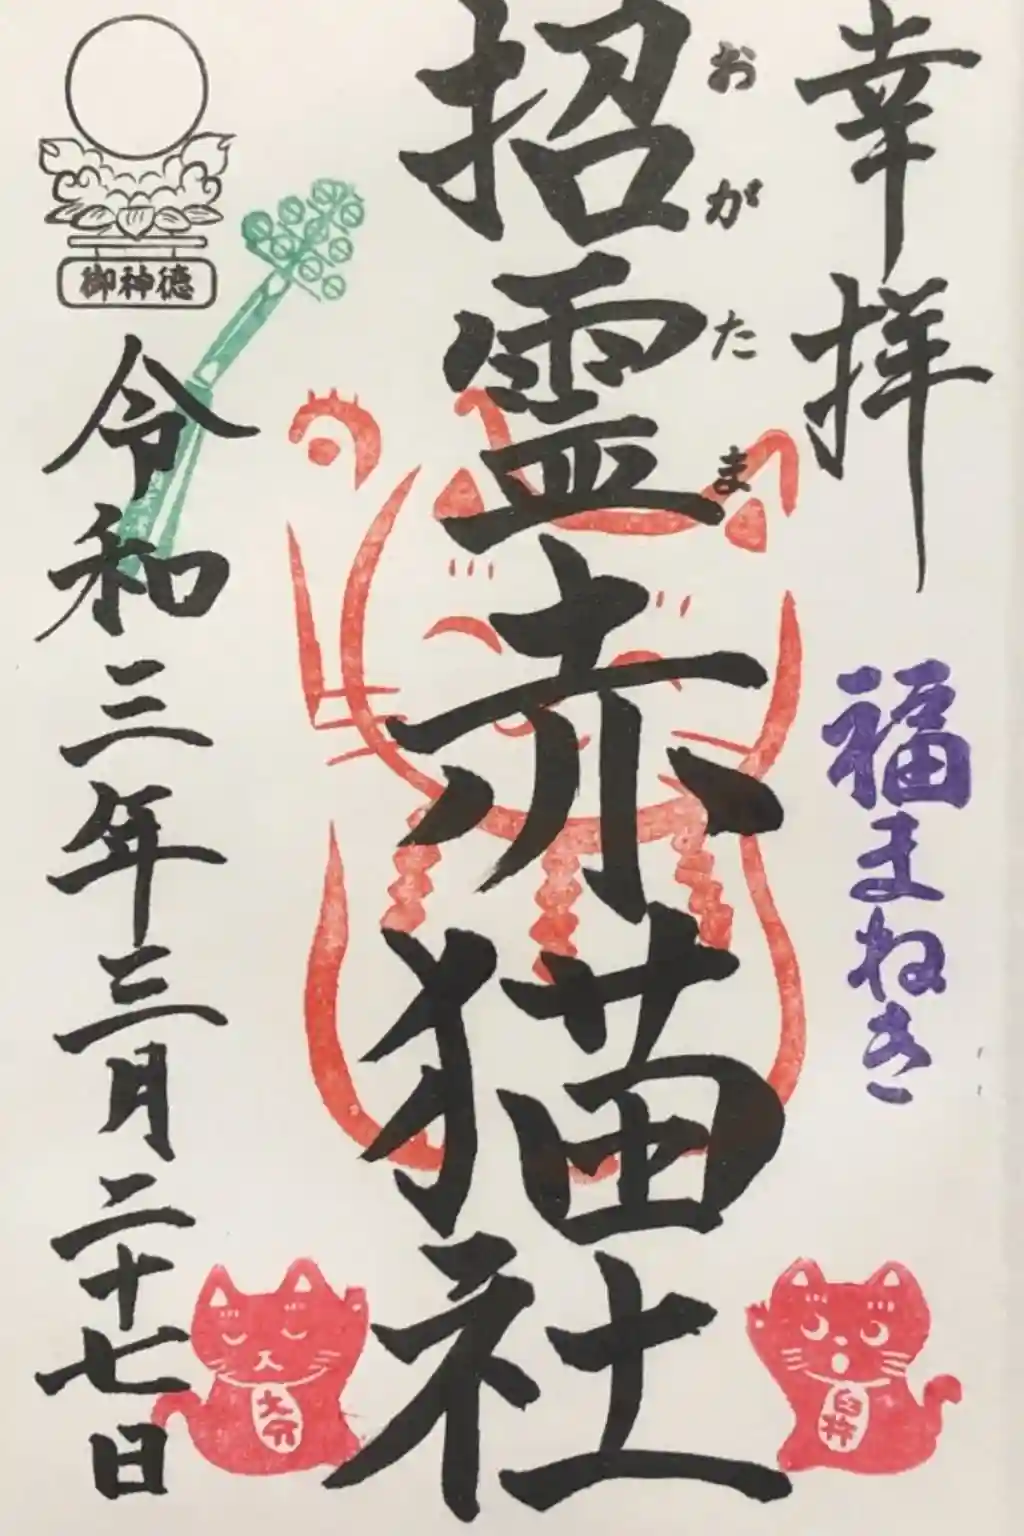 幸拝
福まねき
おがたま
招霊赤猫社
御神徳
令和三年三月二十七日
大分
臼杵